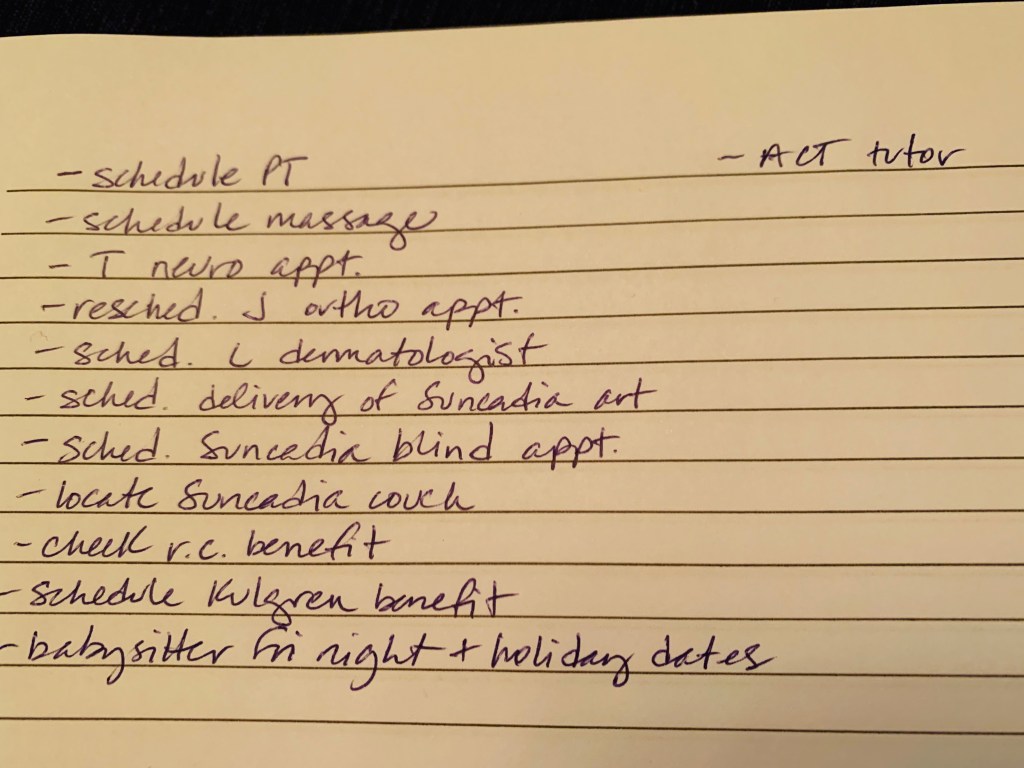 - schedule PT
- ACT tutor
- schedule massage
- T neuro appt.
- resched. J ortho appt.
- sched. L dermatologist
- sched. delivery of Suncadia art
- sched. Suncadia blind appt.
- locate Suncadia couch
- check r.c. benefit
- schedule Kulgren benefit
- babysitter fri night + holiday dates